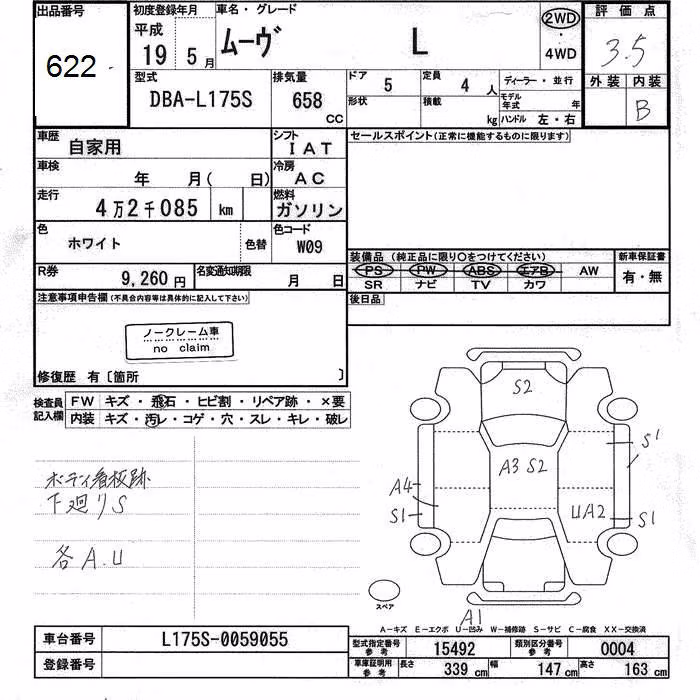 出品番号 初度登録年月 車名・グレード 評価点
622 平成 19 5月 ムーヴ L 2WD・4WD 3.5
型式 排気量 ドア 定員 ディーラー・並行 外装 内装
DBA-L175S 658 CC 5 4人 B
形状 積載 kg モデル年式 年 ハンドル 左・右
車歴 自家用 シフト IAT セールスポイント(正常に機能するものに限ります)
車検 年 月( 日) 冷房 AC
走行 4万2千085 km 燃料 ガソリン
色 ホワイト 色替 色コード W09
装備品(純正品に限り○をつけてください) 新車保証書
R券 9,260円 名変通知期限 月 日
PS PW ABS エアB AW 有・無
SR ナビ TV カワ
注意事項申告欄(不具合内容等は具体的に記入して下さい) 後日品
ノークレーム車
no claim
修復歴 有〔箇所 〕
検査員記入欄 FW キズ・飛石・ヒビ割・リペア跡・×要
内装 キズ・汚レ・コゲ・穴・スレ・キレ・破レ
ボディ看板跡
下廻りS
各A.U
S2
S1
A3 S2
A4
S1
UA2 S1
スペア
A1
A-キズ E-エクボ U-凹み W-補修跡 S-サビ C-腐食 XX-交換済
車台番号 L175S-0059055 型式指定番号 参考 15492 類別区分番号 参考 0004
登録番号 車庫証明用 参考 長さ 339cm 幅 147cm 高さ 163cm